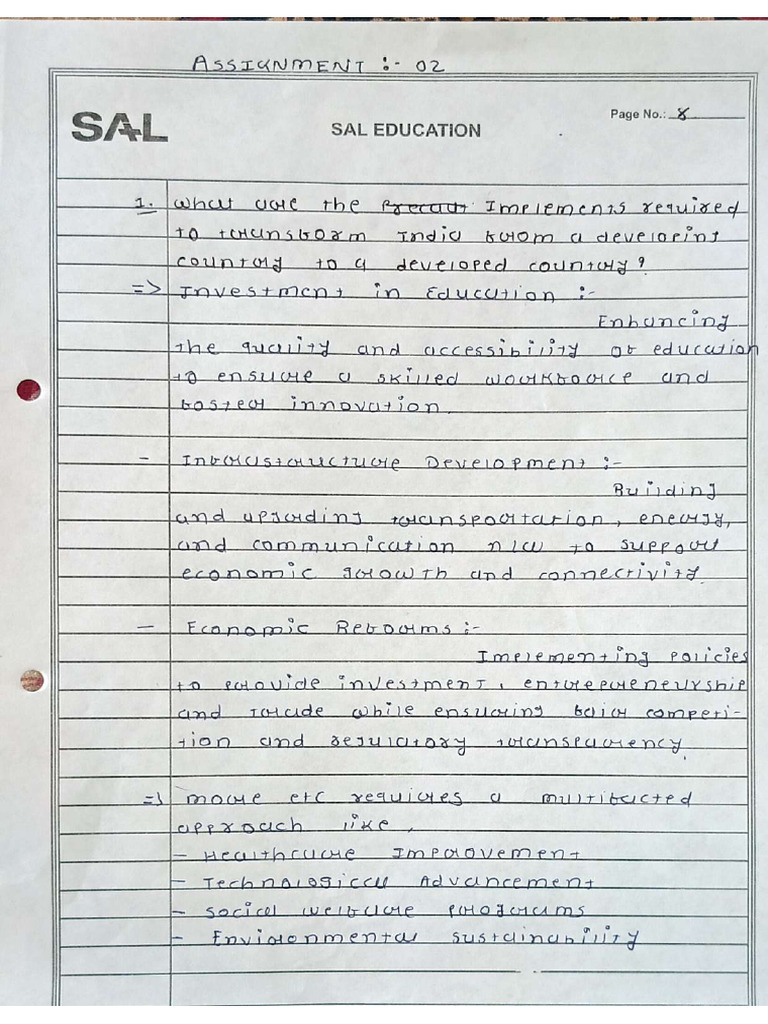 ASSIGNMENT :- 02
SAL
SAL EDUCATION
Page No.: 8
1. What are the Implements required
to transform India from a developing
country to a developed country?
=> Investment in Education :-
Enhancing
the quality and accessibility of education
to ensure a skilled workforce and
foster innovation.
- Infrastructure Development :-
Building
and upgrading transportation, energy,
and communication n/w to support
economic growth and connectivity.
- Economic Reforms :-
Implementing policies
to provide investment, entrepreneurship
and trade while ensuring fair competi-
tion and regulatory transparency.
=> more etc requires a multifacted
approach like,
- Healthcare Improvement
- Technological Advancement
- Social welfare programs
- Environmental sustainability